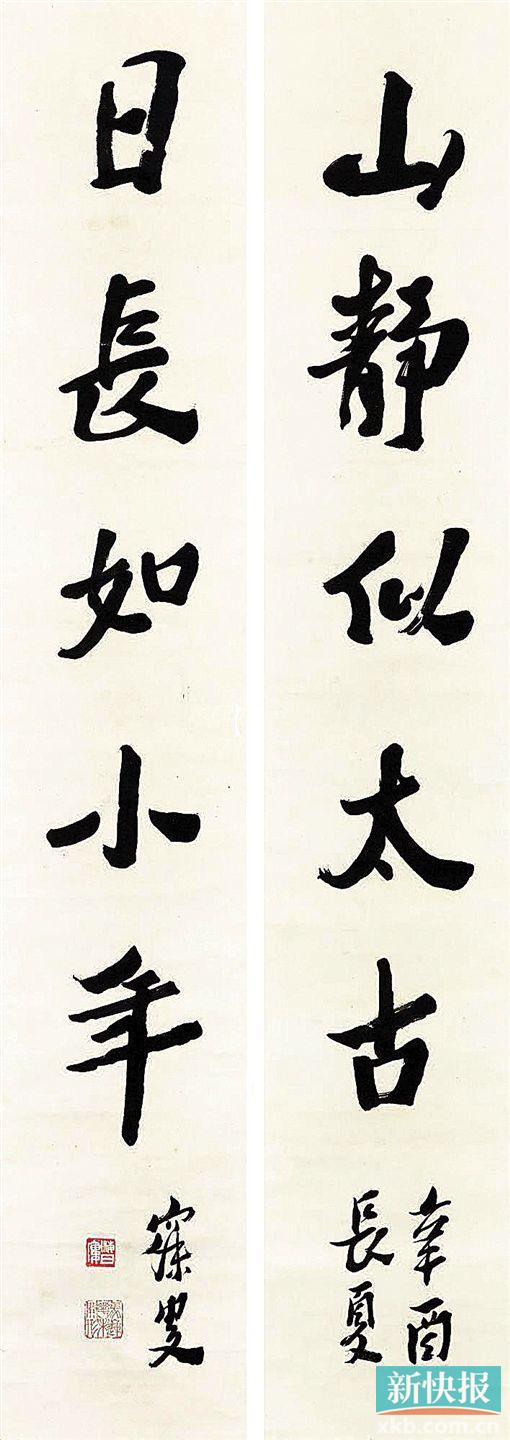 山靜似太古
辛酉
長夏
日長如小年
寐叟
新快报
xkb.com.cn